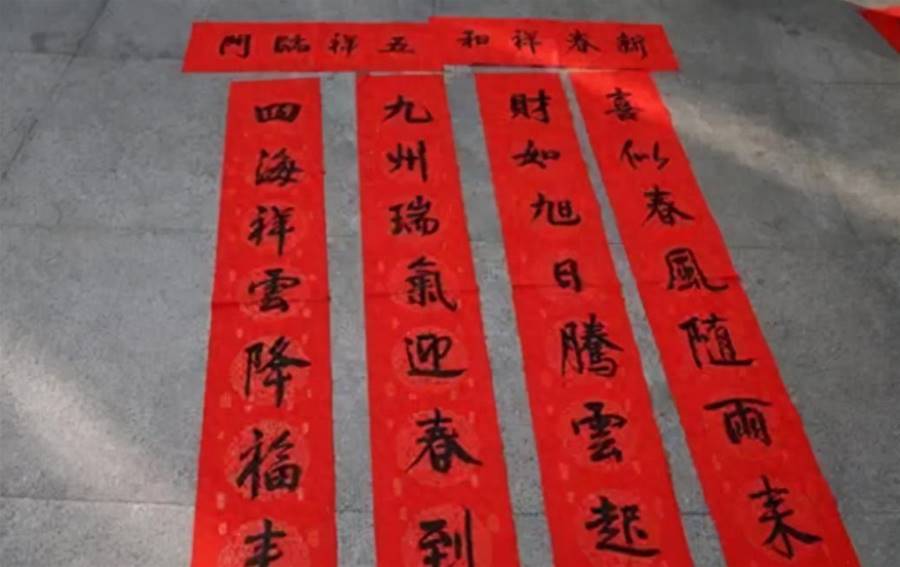 新春祥和
五祥臨門
喜似春風随雨来
財如旭日騰雲起
九州瑞氣迎春到
四海祥雲降福来